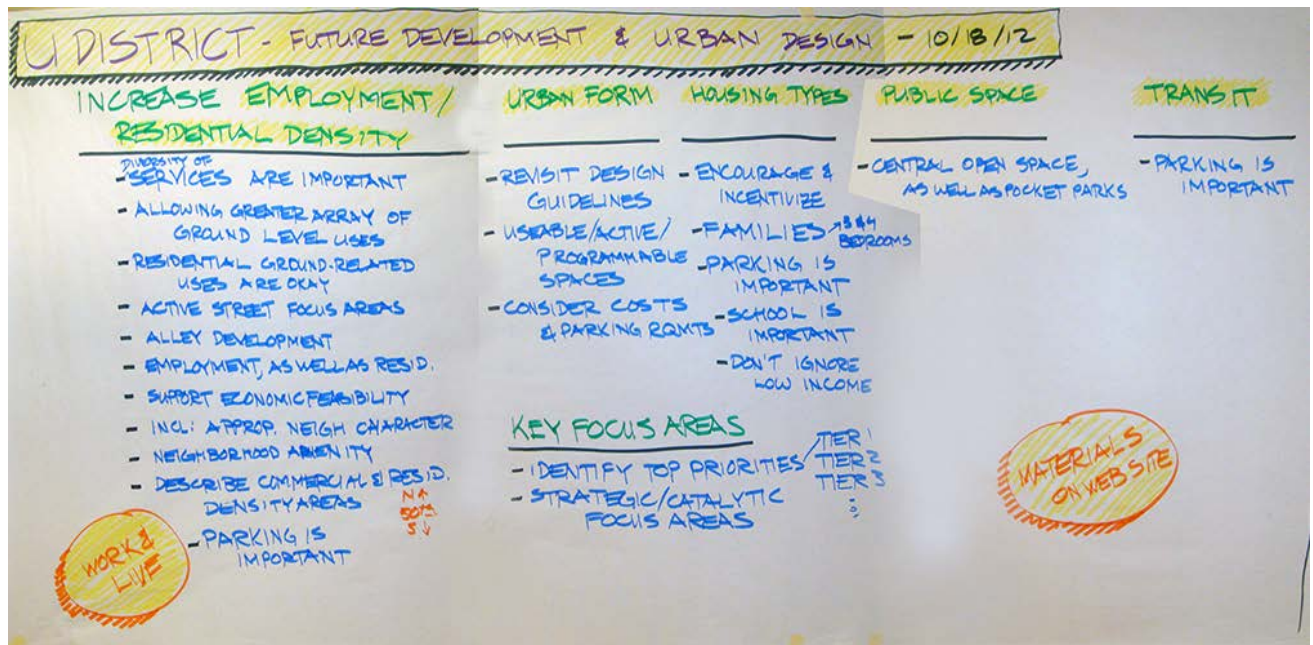 U DISTRICT - FUTURE DEVELOPMENT & URBAN DESIGN - 10/18/12
INCREASE EMPLOYMENT/
RESIDENTIAL DENSITY
DIVERSITY OF
- SERVICES ARE IMPORTANT
- ALLOWING GREATER ARRAY OF
GROUND LEVEL USES
- RESIDENTIAL GROUND-RELATED
USES ARE OKAY
- ACTIVE STREET FOCUS AREAS
- ALLEY DEVELOPMENT
- EMPLOYMENT, AS WELL AS RESID.
- SUPPORT ECONOMIC FEASIBILITY
- INCL: APPROP. NEIGH CHARACTER
- NEIGHBORHOOD AMENITY
- DESCRIBE COMMERCIAL & RESID.
DENSITY AREAS
N↑
50th
S↓
- PARKING IS
IMPORTANT
WORK &
LIVE
URBAN FORM
- REVISIT DESIGN
GUIDELINES
- USEABLE/ACTIVE/
PROGRAMMABLE
SPACES
- CONSIDER COSTS
& PARKING RQMTS
HOUSING TYPES
- ENCOURAGE &
INCENTIVIZE
- FAMILIES → 3 & 4
BEDROOMS
- PARKING IS
IMPORTANT
- SCHOOL IS
IMPORTANT
- DON'T IGNORE
LOW INCOME
KEY FOCUS AREAS
- IDENTIFY TOP PRIORITIES
TIER 1
TIER 2
TIER 3
- STRATEGIC/CATALYTIC
FOCUS AREAS
PUBLIC SPACE
- CENTRAL OPEN SPACE,
AS WELL AS POCKET PARKS
TRANSIT
- PARKING IS
IMPORTANT
MATERIALS
ON WEBSITE